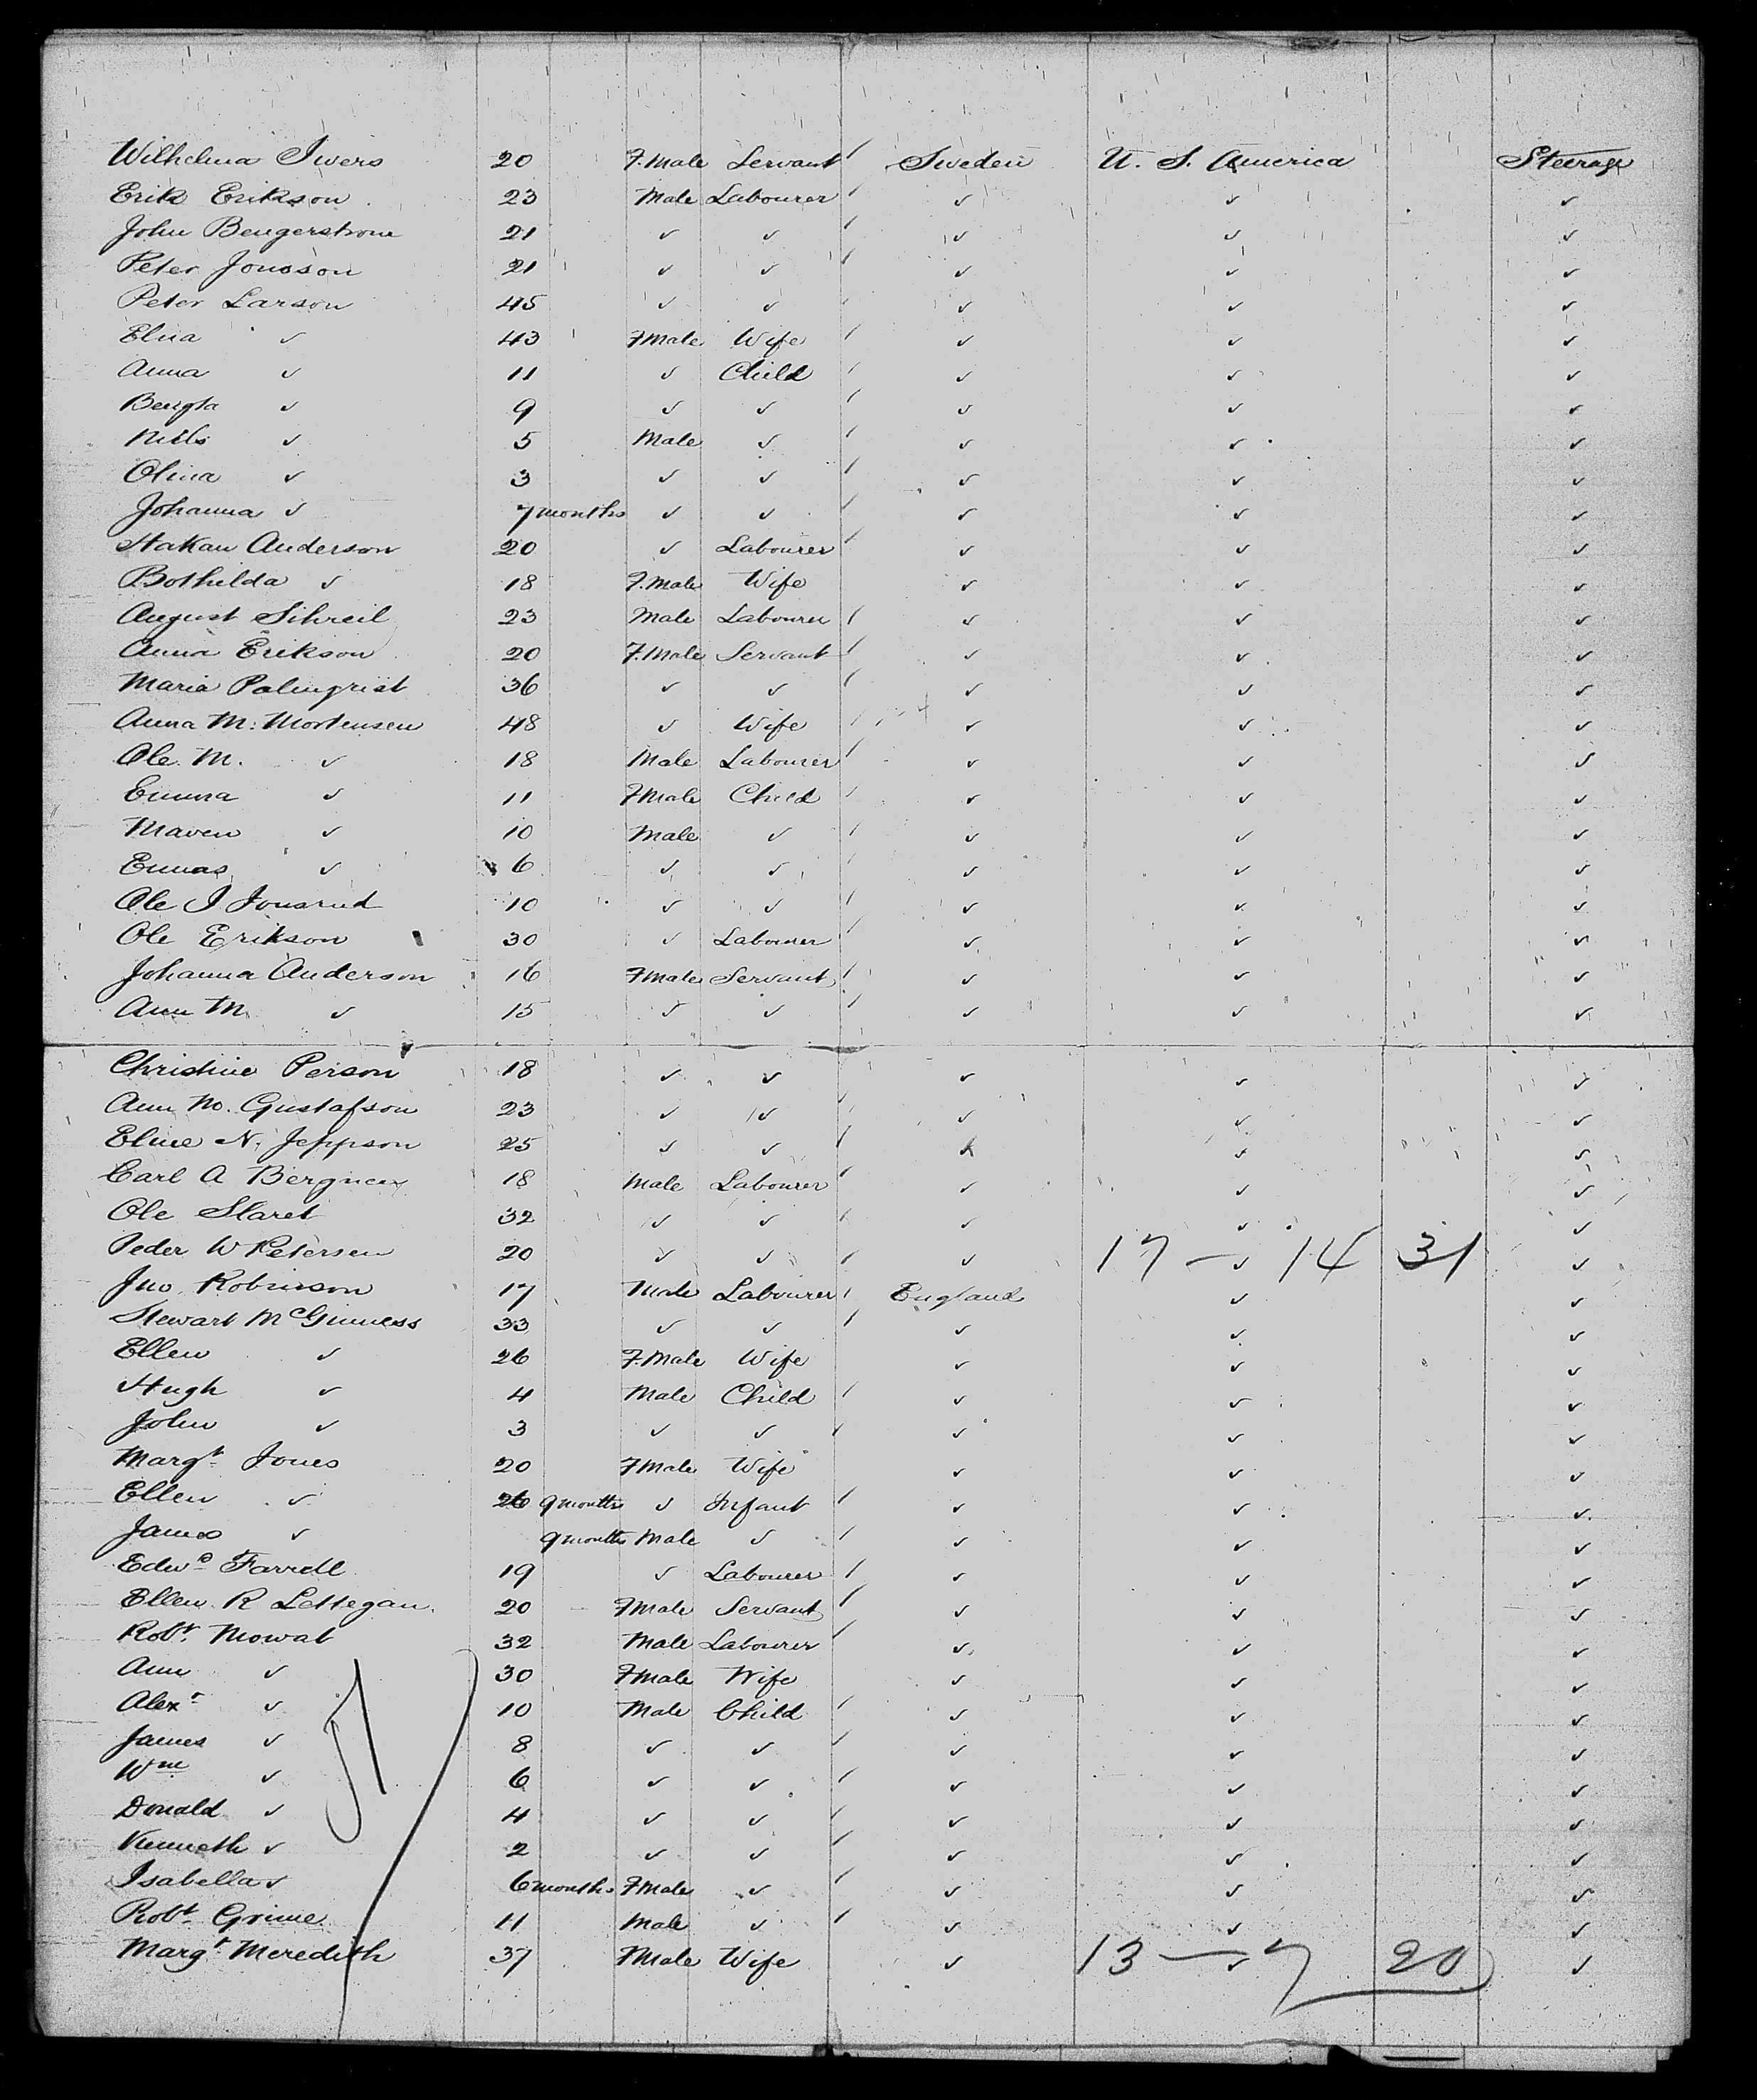 Wilhelmina Iwers 20 F.Male Servant Sweden U. S. America Steerage
Erik Erikson 23 Male Labourer ✓ ✓ ✓
John Bengerstrom 21 ✓ ✓ ✓ ✓ ✓
Peter Jonsson 21 ✓ ✓ ✓ ✓ ✓
Peter Larson 45 ✓ ✓ ✓ ✓ ✓
Elna ✓ 43 FMale Wife ✓ ✓ ✓
Anna ✓ 11 ✓ Child ✓ ✓ ✓
Bengta ✓ 9 ✓ ✓ ✓ ✓ ✓
Nils ✓ 5 Male ✓ ✓ ✓ ✓
Olina ✓ 3 ✓ ✓ ✓ ✓ ✓
Johanna ✓ 7 months ✓ ✓ ✓ ✓ ✓
Hakan Anderson 20 ✓ Labourer ✓ ✓ ✓
Bothilda ✓ 18 F.Male Wife ✓ ✓ ✓
August Sihreil 23 Male Labourer ✓ ✓ ✓
Anna Erikson 20 F.Male Servant ✓ ✓ ✓
Maria Palmgrist 36 ✓ ✓ ✓ ✓ ✓
Anna M. Mortensen 48 ✓ Wife ✓ ✓ ✓
Ole M. ✓ 18 Male Labourer ✓ ✓ ✓
Emma ✓ 11 FMale Child ✓ ✓ ✓
Maven ✓ 10 Male ✓ ✓ ✓ ✓
Ennas ✓ 6 ✓ ✓ ✓ ✓ ✓
Ole J Jonsrud 10 ✓ ✓ ✓ ✓ ✓
Ole Erikson 30 ✓ Labourer ✓ ✓ ✓
Johanna Anderson 16 FMale Servant ✓ ✓ ✓
Ann M ✓ 15 ✓ ✓ ✓ ✓ ✓
Christine Person 18 ✓ ✓ ✓ ✓ ✓
Ann M. Gustafson 23 ✓ ✓ ✓ ✓ ✓
Eline N. Jeppson 25 ✓ ✓ ✓ ✓ ✓
Carl A Bergner 18 Male Labourer ✓ ✓ ✓
Ole Slaret 32 ✓ ✓ ✓ ✓ ✓
Peder W Petersen 20 ✓ ✓ ✓ 17 — ✓ 14 31 ✓
Jno. Robinson 17 Male Labourer England ✓ ✓
Stewart McGuiness 33 ✓ ✓ ✓ ✓ ✓
Ellen ✓ 26 F.Male Wife ✓ ✓ ✓
Hugh ✓ 4 Male Child ✓ ✓ ✓
John ✓ 3 ✓ ✓ ✓ ✓ ✓
Margt. Jones 20 FMale Wife ✓ ✓ ✓
Ellen ✓ 9 months ✓ Infant ✓ ✓ ✓
James ✓ 9 months Male ✓ ✓ ✓ ✓
Edwd. Farrell 19 ✓ Labourer ✓ ✓ ✓
Ellen R Lettegan. 20 FMale Servant ✓ ✓ ✓
Robt. Mowat 32 Male Labourer ✓ ✓ ✓
Ann ✓ 30 FMale Wife ✓ ✓ ✓
Alexr. ✓ 10 Male Child ✓ ✓ ✓
James ✓ 8 ✓ ✓ ✓ ✓ ✓
Wm ✓ 6 ✓ ✓ ✓ ✓ ✓
51
Donald ✓ 4 ✓ ✓ ✓ ✓ ✓
Kenneth ✓ 2 ✓ ✓ ✓ ✓ ✓
Isabella ✓ 6 months FMale ✓ ✓ ✓ ✓
Robt. Grime 11 Male ✓ ✓ ✓ ✓
Margt. Meredith 37 FMale Wife ✓ 13 — ✓ 7 20 ✓